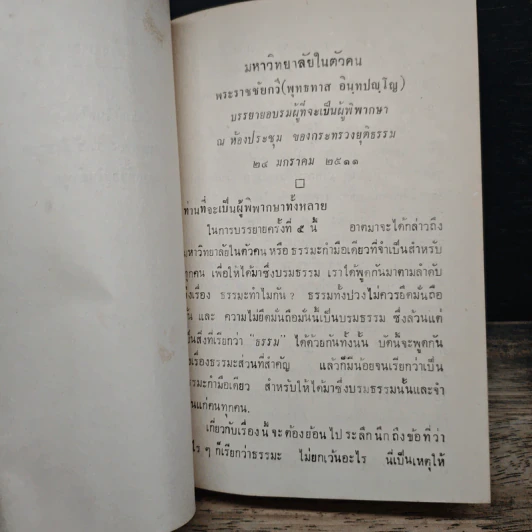 มหาวิทยาลัยในตัวคน
พระราชชัยกวี(พุทธทาส อินฺทปญฺโญ)
บรรยายอบรมผู้ที่จะเป็นผู้พิพากษา
ณ ห้องประชุม ของกระทรวงยุติธรรม
๒๔ มกราคม ๒๕๑๑
ท่านที่จะเป็นผู้พิพากษาทั้งหลาย
ในการบรรยายครั้งที่ ๕ นี้ อาตมาจะได้กล่าวถึง
มหาวิทยาลัยในตัวคน หรือ ธรรมะกำมือเดียวที่จำเป็นสำหรับ
ทุกคน เพื่อให้ได้มาซึ่งบรมธรรม เราได้พูดกันมาตามลำดับ
เรื่อง ธรรมะทำไมกัน? ธรรมทั้งปวงไม่ควรยึดมั่นถือ
และ ความไม่ยึดมั่นถือมั่นนี้เป็นบรมธรรม ซึ่งล้วนแต่
เป็นสิ่งที่เรียกว่า "ธรรม" ได้ด้วยกันทั้งนั้น บัดนี้จะพูดกัน
เรื่องธรรมะส่วนที่สำคัญ แล้วก็มีน้อยจนเรียกว่าเป็น
ธรรมะกำมือเดียว สำหรับให้ได้มาซึ่งบรมธรรมนั้นและจำ
แก่คนทุกคน.
เกี่ยวกับเรื่องนี้จะต้องย้อนไประลึกนึกถึงข้อที่ว่า
ๆ ก็เรียกว่าธรรมะ ไม่ยกเว้นอะไร นี่เป็นเหตุให้